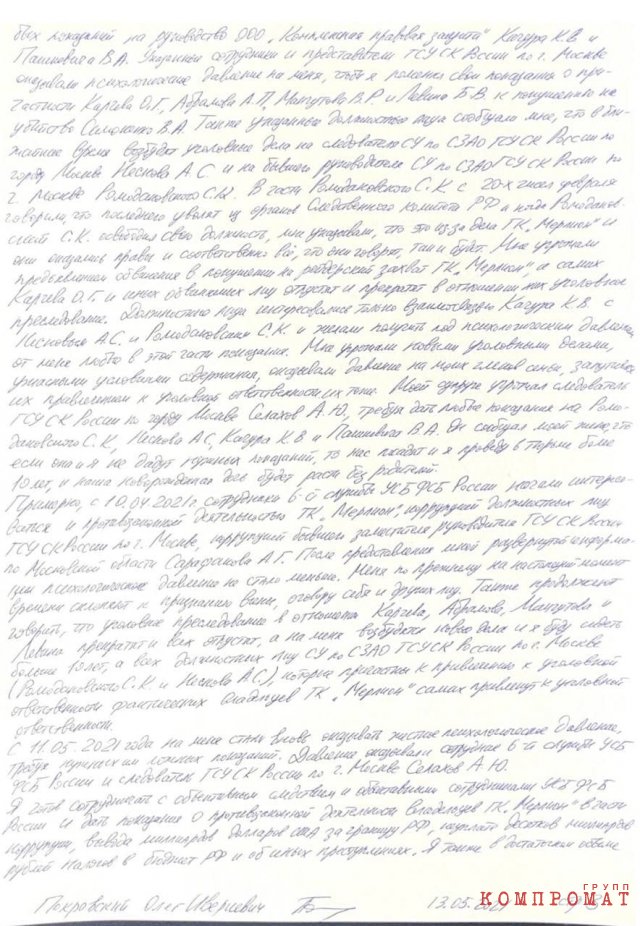 бых показаний на руководство ООО „Комплексная правовая защита" Качура К.В. и
Пашкевича В.А. Указанные сотрудники и представители ГСУ СК России по г. Москве
оказывали психологическое давление на меня, чтобы я поменял свои показания о при-
частности Каргева О.Г., Абралова А.П., Магутова В.Р. и Левина Б.В. к покушению на
убийство В.А. Также указанные должностные лица сообщали мне, что в бли-
жайшее время возбудят уголовные дела на следователя СУ по СЗАО ГСУ СК России по
городу Москве Неснова А.С. и на бывшего руководителя СУ по СЗАО ГСУ СК России по
г. Москве Ромодановского С.К. В части Ромодановского С.К. с 20-х чисел февраля
говорили, что последнего уволят из органов Следственного комитета РФ и когда Ромоданов-
ский С.К. освободил свою должность, мне указывали, что это из-за дела ГК „Мерлион" и
они оказались правы и соответственно всё, что они говорят, так и будет. Мне угрожали
предъявлением обвинения в покушении на рейдерский захват ГК „Мерлион", а самих
Каргева О.Г. и иных обвиняемых лиц отпустят и прекратят в отношении них уголовное
преследование. Должностные лица интересовались только взаимосвязью Качура К.В. с
Несновым А.С. и Ромодановским С.К. и желали получить под психологическим давлением
от меня любые в этой части показания. Мне угрожали новыми уголовными делами,
ужасными условиями содержания, оказывали давление на моих членов семьи, запугивая
их привлечением к уголовной ответственности их тоже. Моей супруге угрожал следователь
ГСУ СК России по городу Москве Селахов А.Ю., требуя дать любые показания на Ромо-
дановского С.К., Неснова А.С., Качура К.В. и Пашкевича В.А. Он сообщал моей жене, что
если она и я не дадут нужных показаний, то нас посадят и я проведу в тюрьме более
10 лет, и наша новорожденная дочь будет расти без родителей.
Примерно, с 10.04.2021г. сотрудники 6-й службы УСБ ФСБ России начали интересо-
ваться и противозаконной деятельностью ГК „Мерлион", коррупцией должностных лиц
ГСУ СК России по г. Москве, коррупцией бывшего заместителя руководителя ГСУ СК России
по Московской области Сарафанова А.Г. После представления мной развернутой информа-
ции психологическое давление на стало меньше. Меня по прежнему на настоящий момент
времени склоняют к признанию вины, оговору себя и других лиц. Также продолжают
говорить, что уголовное преследование в отношении Каргева, Абралова, Магутова и
Левина прекратят и всех отпустят, а на меня возбудят новые дела и я буду сидеть
больше 10 лет, а всех должностных лиц СУ по СЗАО ГСУ СК России по г. Москве
(Ромодановского С.К. и Неснова А.С.), которые причастны к привлечению к уголовной
ответственности фактических владельцев ГК „Мерлион" самих привлекут к уголовной
ответственности.
С 11.05.2021 года на меня стали вновь оказывать жесткое психологическое давление,
требуя нужных им ложных показаний. Давление оказывали сотрудники 6-й службы УСБ
ФСБ России и следователь ГСУ СК России по г. Москве Селахов А.Ю.
Я готов сотрудничать с объективным следствием и объективными сотрудниками УСБ ФСБ
России и дать показания о противозаконной деятельности владельцев ГК „Мерлион" в части
коррупции, вывода миллиардов долларов США за границу РФ, неуплате десятков миллиардов
рублей налогов в бюджет РФ и об иных преступлениях. Я также в достаточном объеме
Покровский Олег Игоревич 13.05.2021
ГРУПП
КОМПРОМАТ